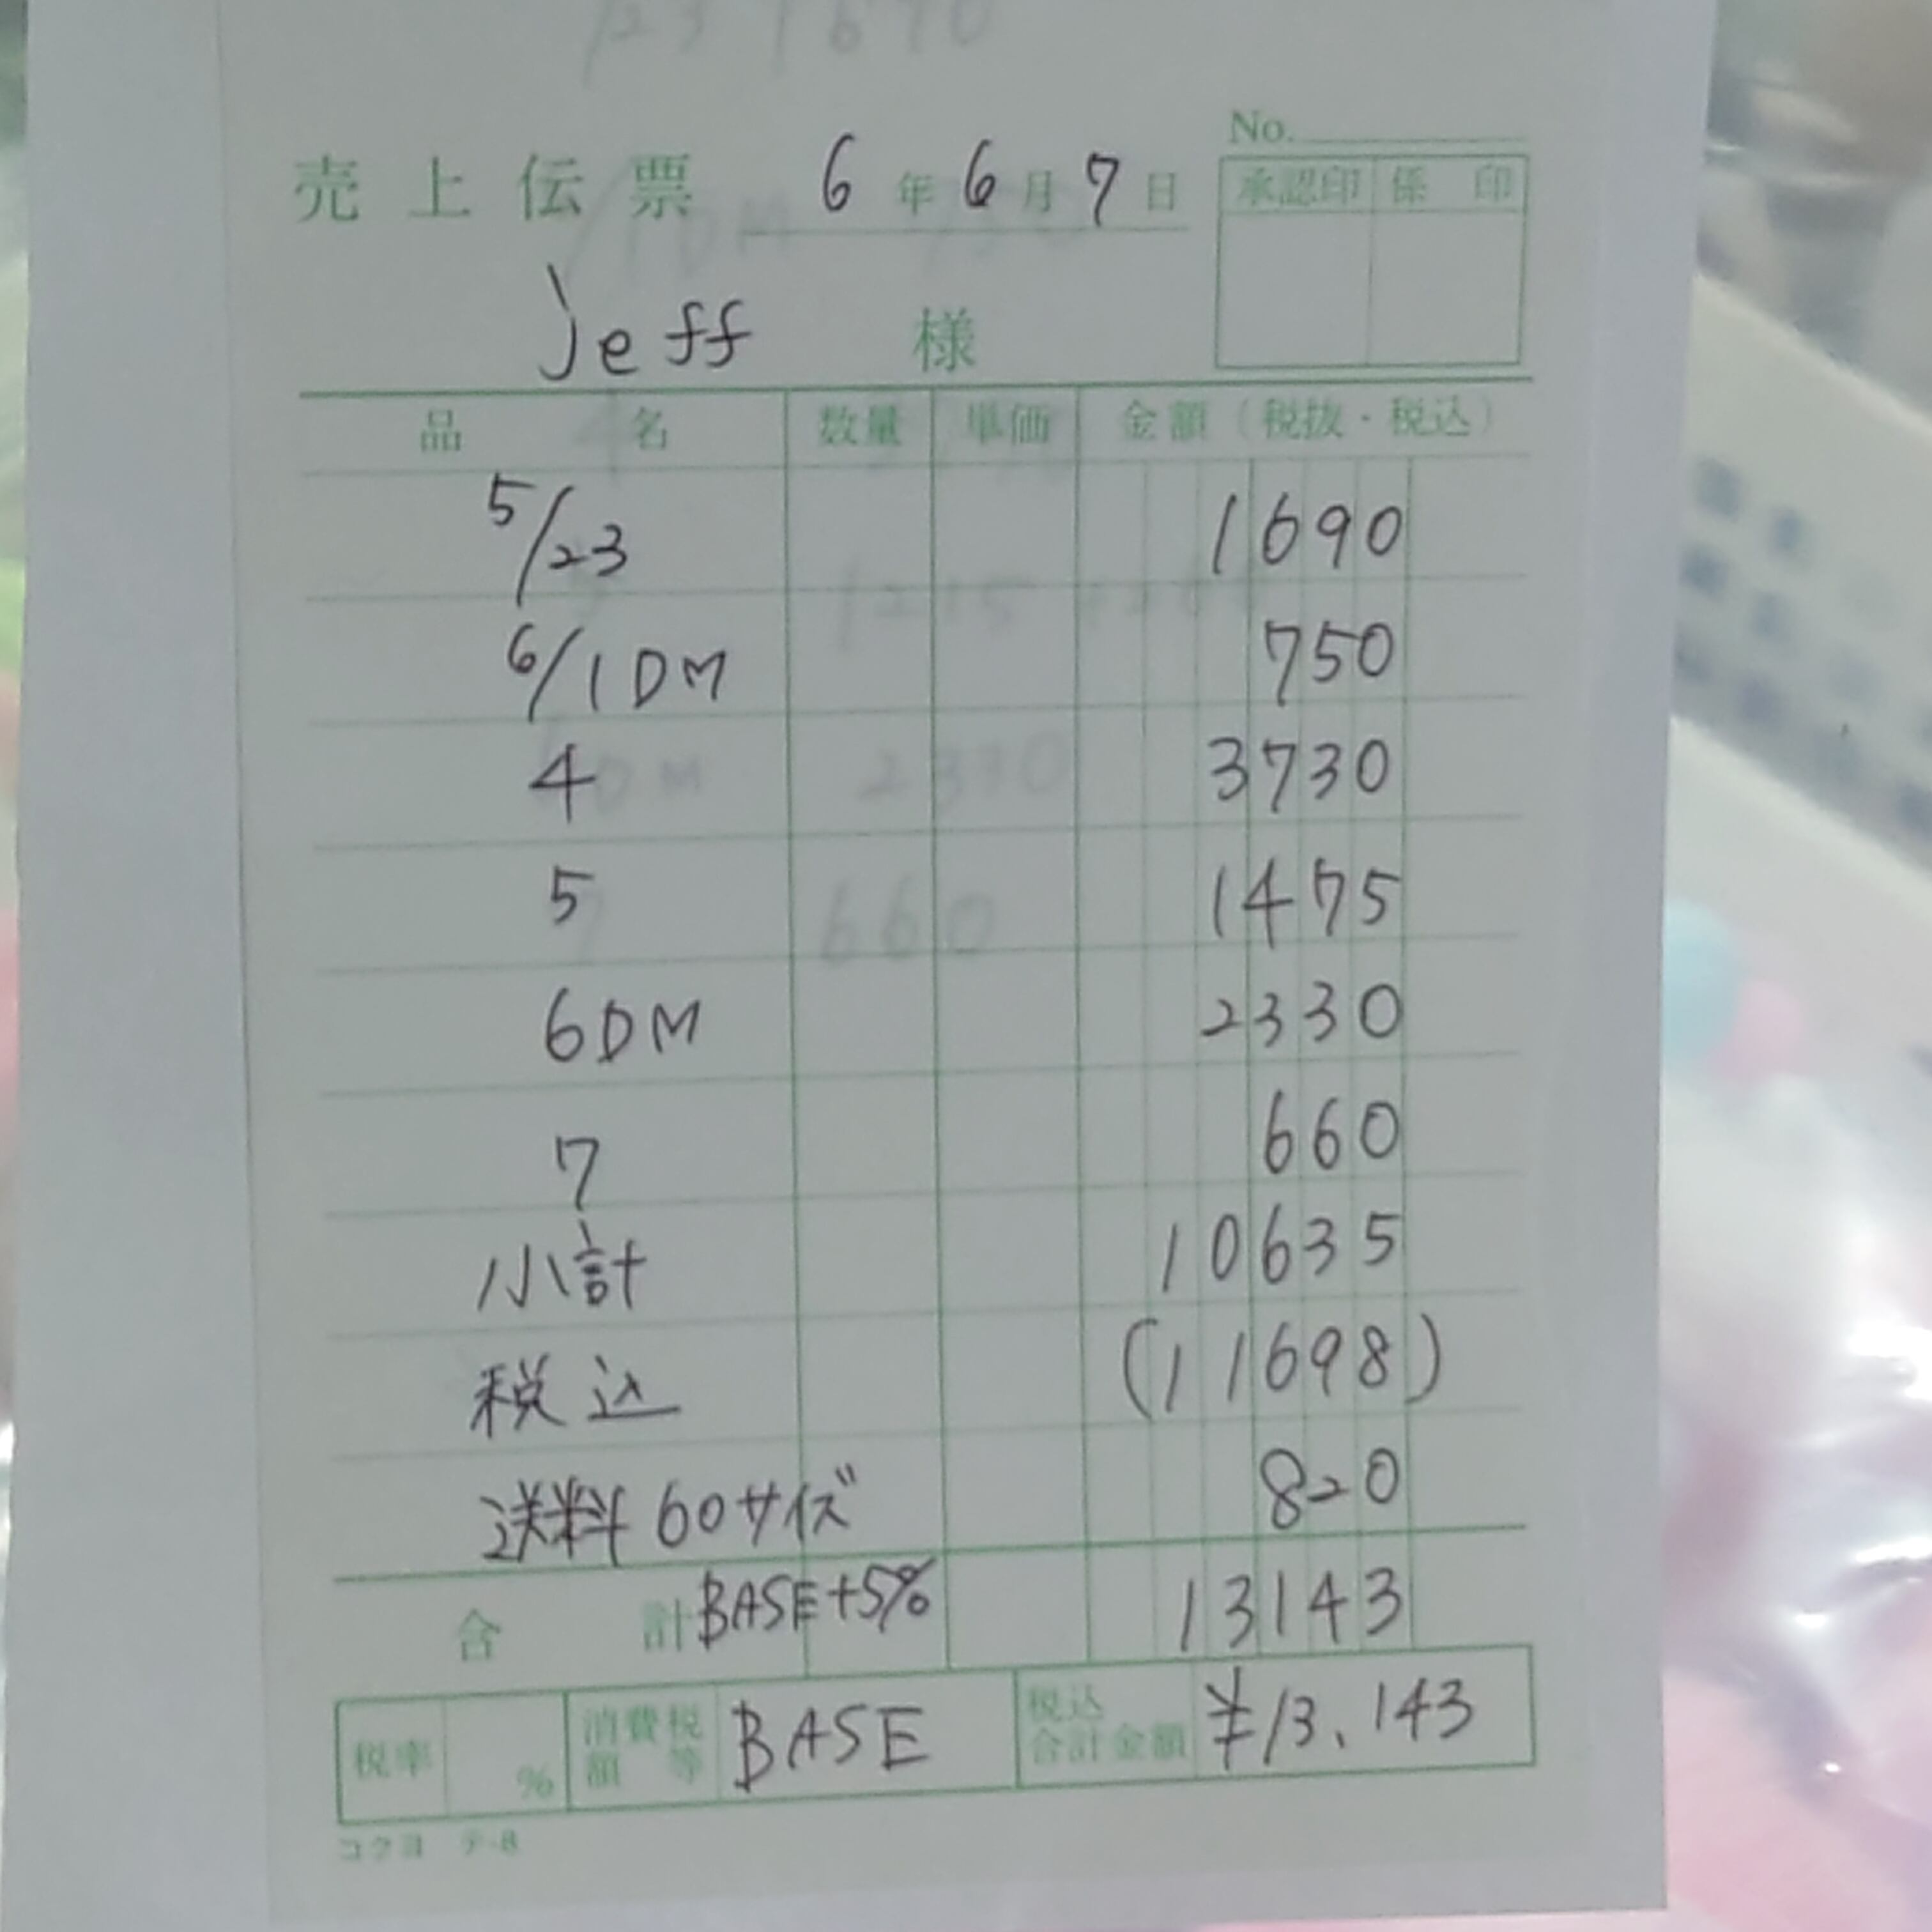 231690
No.
売上伝票 6年6月7日
承認印 係印
jeff 様
品名 数量 単価 金額(税抜・税込)
5/23 1690
6/1DM 750
4 3730
5 1475
6DM 2330
7 660
小計 10635
税込 (11698)
送料60サイズ 820
合計 BASE+5% 13143
税率 % 消費税額等 BASE 税込合計金額 ¥13,143
コクヨ テ-8